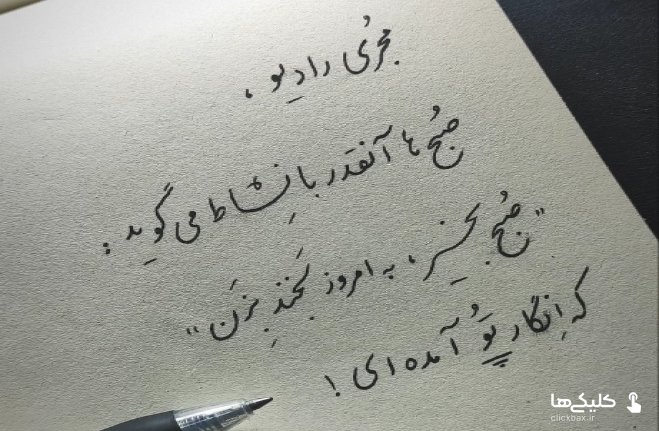 مُجری رادیو ،
صُبح ها آنقَدر با نِشاط می گوید :
"صُبح بخیر ، به امروز لَبخند بزَن"
که اِنگار تُو آمده ای !
کلیکی‌ها
clickbax.ir